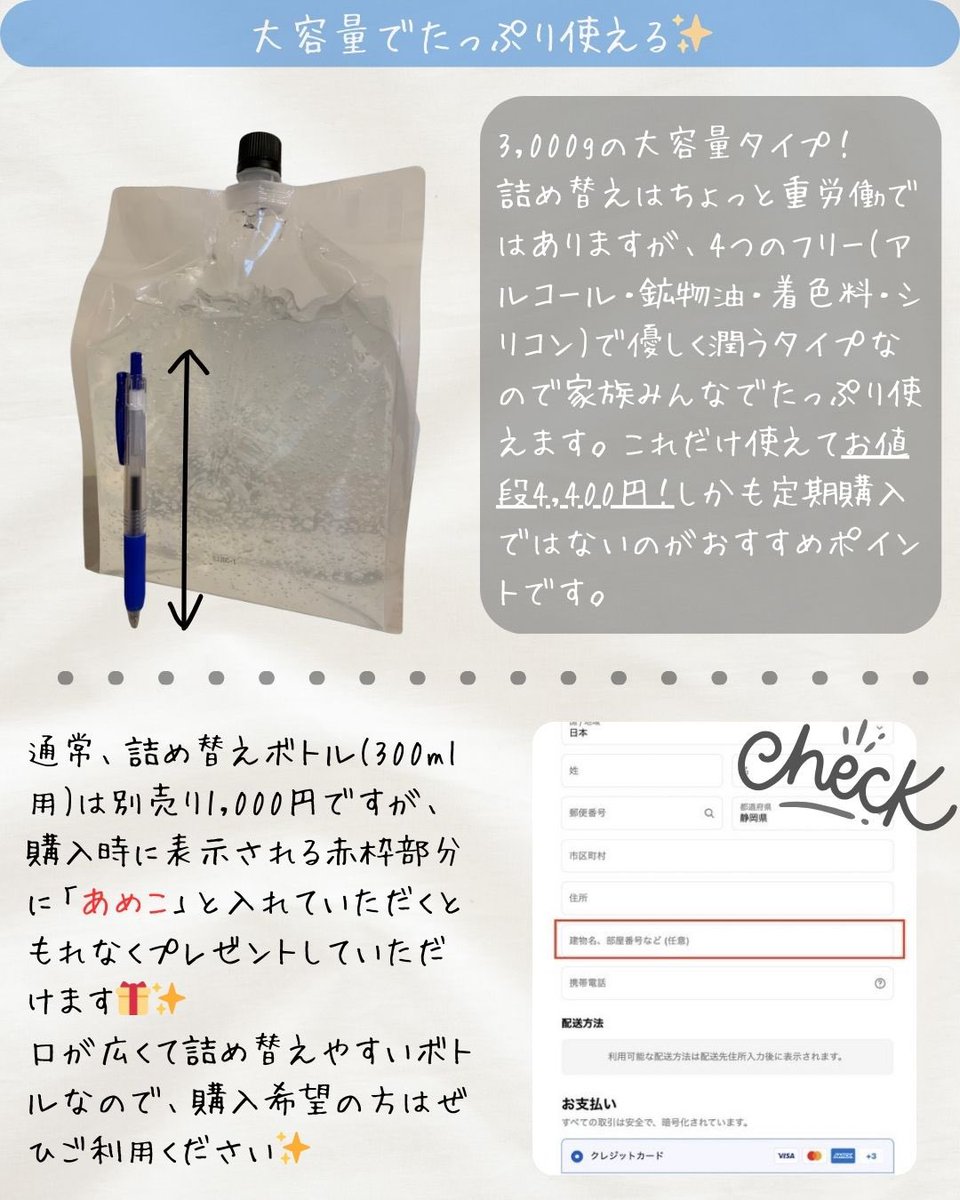 大容量でたっぷり使える✨
3,000gの大容量タイプ!
詰め替えはちょっと重労働で
はありますが、4つのフリー(ア
ルコール・鉱物油・着色料・シ
リコン)で優しく潤うタイプな
ので家族みんなでたっぷり使
えます。これだけ使えてお値
段4,400円!しかも定期購入
ではないのがおすすめポイン
トです。
通常、詰め替えボトル(300ml
用)は別売り1,000円ですが、
購入時に表示される赤枠部分
に「あめこ」と入れていただくと
もれなくプレゼントしていただ
けます🎁✨
口が広くて詰め替えやすいボト
ルなので、購入希望の方はぜ
ひご利用ください✨
check
国/地域
日本
姓
郵便番号
都道府県
静岡県
市区町村
住所
建物名、部屋番号など (任意)
携帯電話
配送方法
利用可能な配送方法は配送先住所入力後に表示されます。
お支払い
すべての取引は安全で、暗号化されています。
クレジットカード
VISA
+3